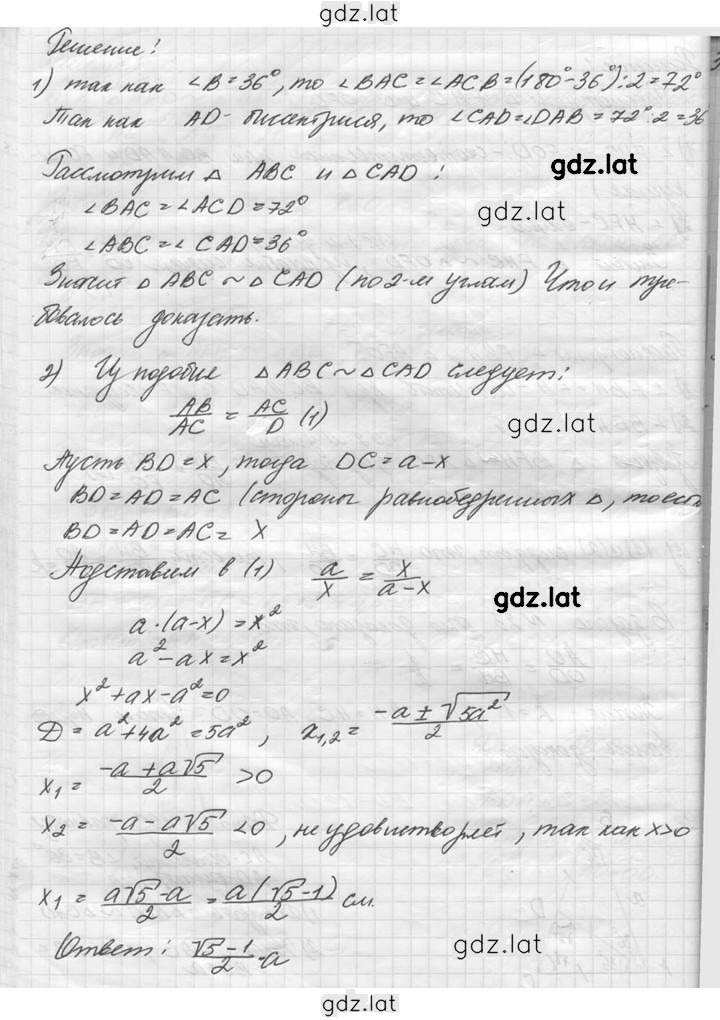 gdz.lat
Решение!
1) так как ∠B=36°, то ∠BAC=∠ACB=(180°-36°):2=72°
Так как AD- биссектриса, то ∠CAD=∠DAB=72°:2=36
gdz.lat
Рассмотрим △ ABC и △CAD:
∠BAC=∠ACD=72°
gdz.lat
∠ABC=∠CAD=36°
Значит △ABC~△CAD (по 2-м углам) Что и тре-
бовалось доказать.
2) Из подобия △ABC~△CAD следует:
AB/AC = AC/D (1)
gdz.lat
Пусть BD=x, тогда DC=a-x
BD=AD=AC (стороны равнобедренных △, то есть
BD=AD=AC= x
Подставим в (1) a/x = x/(a-x)
gdz.lat
a·(a-x)=x²
a²-ax=x²
x²+ax-a²=0
D=a²+4a²=5a², x₁,₂= (-a±√5a²)/2
x₁= (-a+a√5)/2 >0
x₂= (-a-a√5)/2 <0, не удовлетворяет, так как x>0
x₁= (a√5-a)/2 = a(√5-1)/2 см.
Ответ: (√5-1)/2·a
gdz.lat
gdz.lat